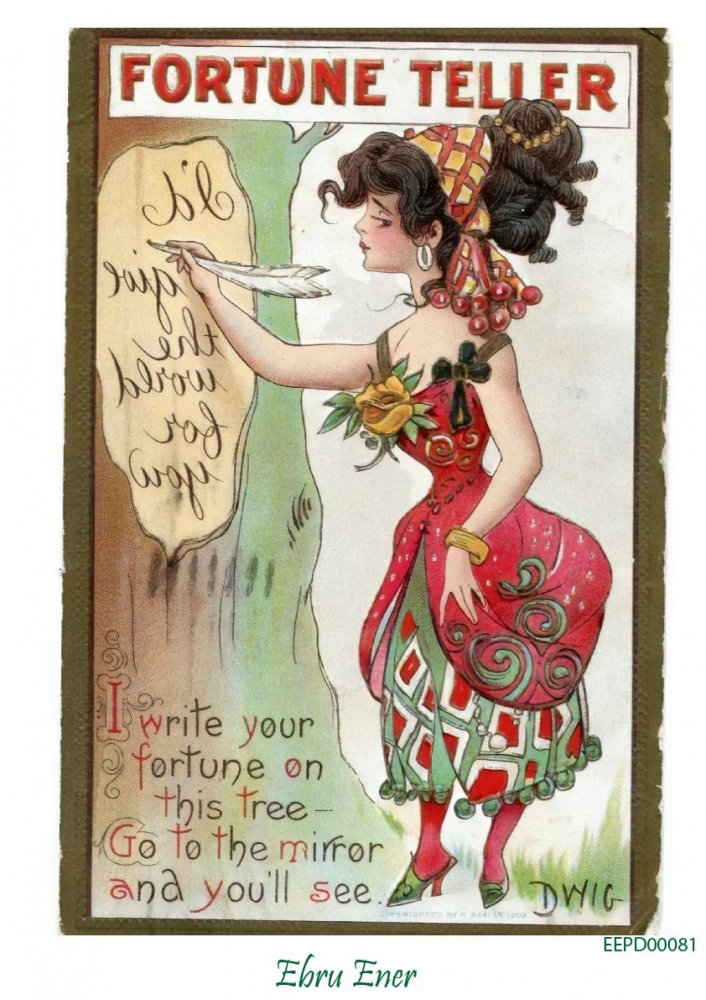 FORTUNE TELLER
I'd
give
the
world
for
you
I write your
fortune on
this tree —
Go to the mirror
and you'll see.
DWIG
COPYRIGHTED BY R. KAPLAN 1909
EEPD00081
Ebru Ener